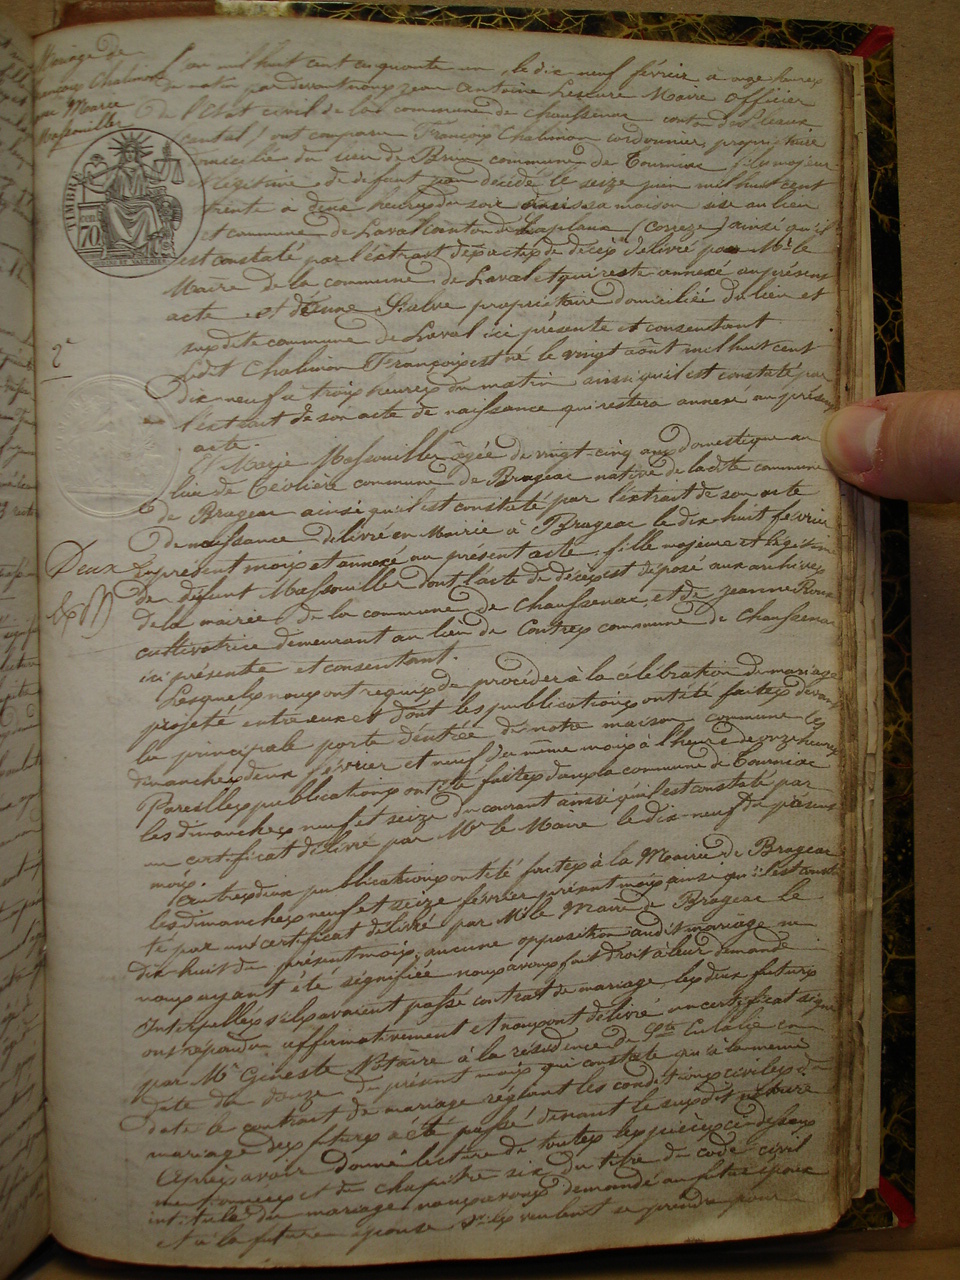 Mariage de
François Chalinon
Marie
Massouiller
L'an mil huit cent cinquante un, le dix neuf février à onze heures
du matin par devant nous Jean Antoine Lescure Maire officier
de l'Etat civil de la commune de Chaussenac canton de Pleaux
(cantal) ont comparu François Chalinon cordonnier, propriétaire
domicilié du lieu de commune de Tourniac fils majeur
et légitime de défunt décédé le seize juin mil huit cent
trente à deux heures du soir dans sa maison sise au lieu
et commune de Laval canton de Laplaux (Correze) ainsi qu'il
est constaté par l'extrait des actes de décès délivré par Mr le
Maire de la commune de Laval et qui reste annexé au présent
acte et d' propriétaire domiciliée du lieu et
susdite commune de Laval ici présente et consentant
Ledit Chalinon François est né le vingt août mil huit cent
dix neuf à trois heures du matin ainsi qu'il est constaté par
l'extrait de son acte de naissance qui restera annexé au présent
acte.
Marie Massouiller âgée de vingt-cinq ans domestique au
lieu de commune de Brageac native de la dite commune
de Brageac ainsi qu'il est constaté par l'extrait de son acte
de naissance délivré en Mairie à Brageac le dix huit février
du présent mois et annexé au présent acte, fille majeure et légitime
de défunt Massouille dont l'acte de décès est déposé aux archives
de la mairie de la commune de Chaussenac, et de Jeanne Roux
cultivatrice demeurant au lieu de Contres commune de Chaussenac
ici présente et consentant.
Lesquels nous ont requis de procéder à la célébration du mariage
projeté entre eux et dont les publications ont été faites devant
la principale porte d'entrée de notre maison commune les
dimanches deux février et neuf du même mois à l'heure de onze heures
Pareilles publications ont été faites dans la commune de Tourniac
les dimanches neuf et seize du courant ainsi qu'il est constaté par
un certificat délivré par Mr le Maire le dix-neuf du présent
mois.
Autres deux publications ont été faites à la Mairie de Brageac
les dimanches neuf et seize février présent mois, ainsi qu'il est consta-
té par un certificat délivré par Mr le Maire de Brageac le
dix huit du présent mois, aucune opposition audit mariage ne
nous ayant été signifiée nous avons fait droit à leur demande
Interpellés s'ils avaient passé contrat de mariage, les deux futurs
ont répondu affirmativement et nous ont délivré un certificat signé
par Mr Gineste Notaire à la résidence de Ste Eulalie en
date du douze du présent mois qui constate qu'à la même
date le contrat de mariage réglant les conditions civiles du
mariage des futurs a été passé devant le susdit notaire
Après avoir donné lecture de toutes les pièces ci-dessus
mentionnées et du chapitre six du titre du code civil
intitulé du mariage, nous avons demandé au futur époux
et à la future épouse s'ils veulent se prendre pour
TIMBRE
70
2e
Deux